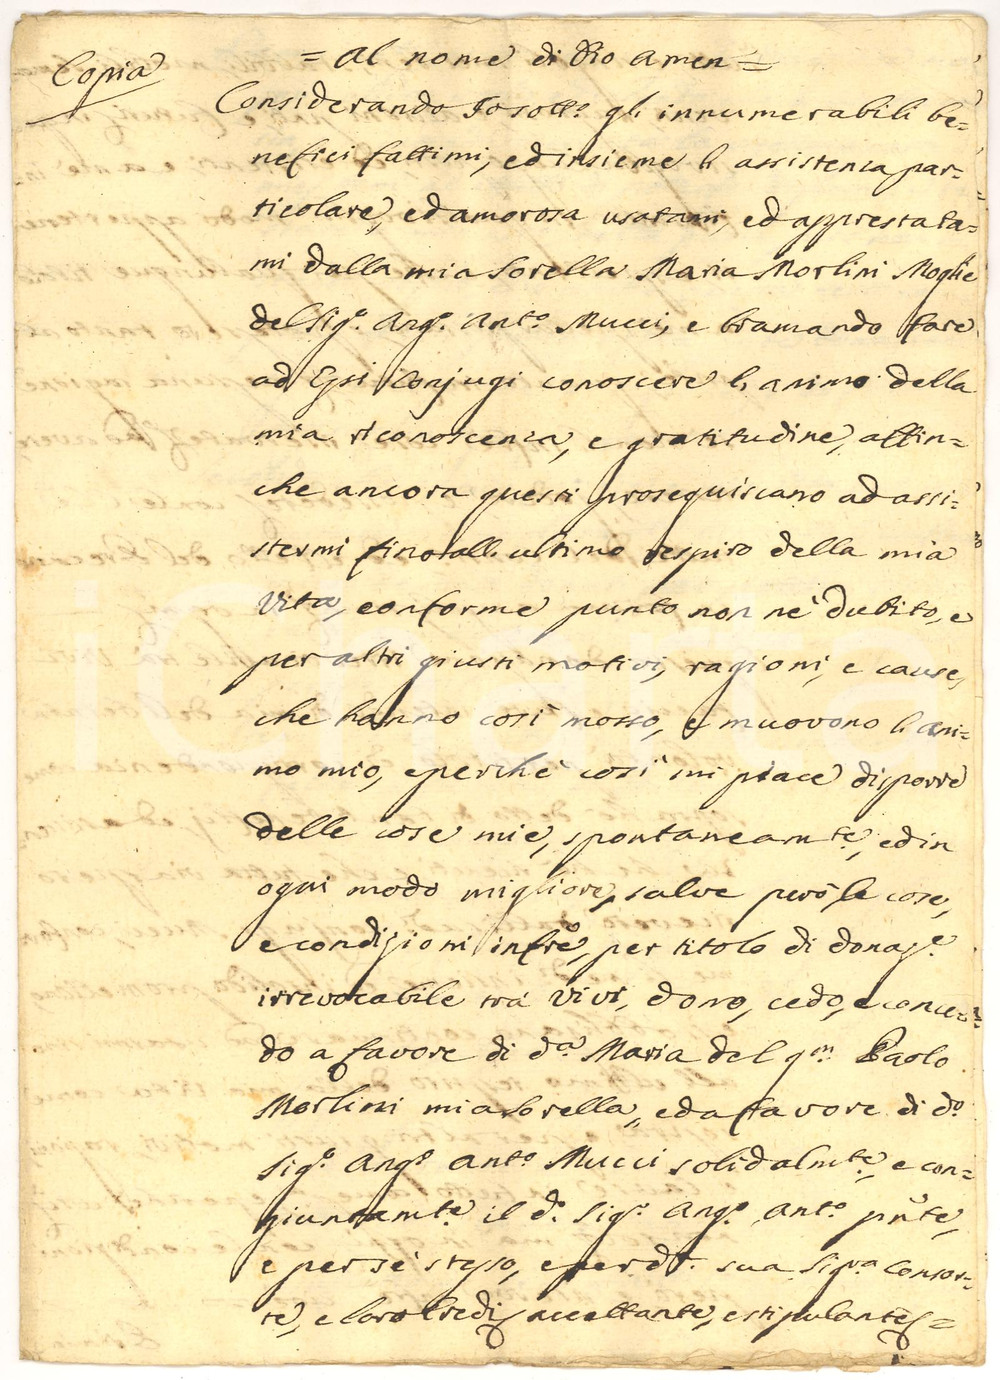 Copia
= Al nome di Dio Amen =
Considerando Io sott.o gli innumerabili be=
nefici fattimi, ed insieme l'assistenza par=
ticolare, ed amorosa usatami, ed apprestata=
mi dalla mia Sorella Maria Morlini Moglie
del Sig.o Ang.o Ant.o Mucci, e bramando fare
ad Essi Conjugi conoscere l'animo della
mia riconoscenza, e gratitudine, affin=
che ancora questi proseguiscano ad assi=
stermi fino all'ultimo respiro della mia
Vita, conforme punto non ne dubito, e
per altri giusti motivi, ragioni, e cause,
che hanno così mosso, e muovono l'ani=
mo mio, e perchè così mi piace disporre
delle cose mie, spontaneam.te, ed in
ogni modo migliore, salve però le cose,
e condizioni infrê, per titolo di donaz.e
irrevocabile trà vivi, dono, cedo, e conce=
do a favore di d.a Maria del q.m Paolo
Morlini mia Sorella, ed a favore di d.o
Sig.o Ang.o Ant.o Mucci solidalm.te, e con=
giuntam.te il d.o Sig.o Ang.o Ant.o pnte,
e per sè stesso, e per d.a sua Sig.ra Consor=
te, e loro Eredi accettante, e stipulante =